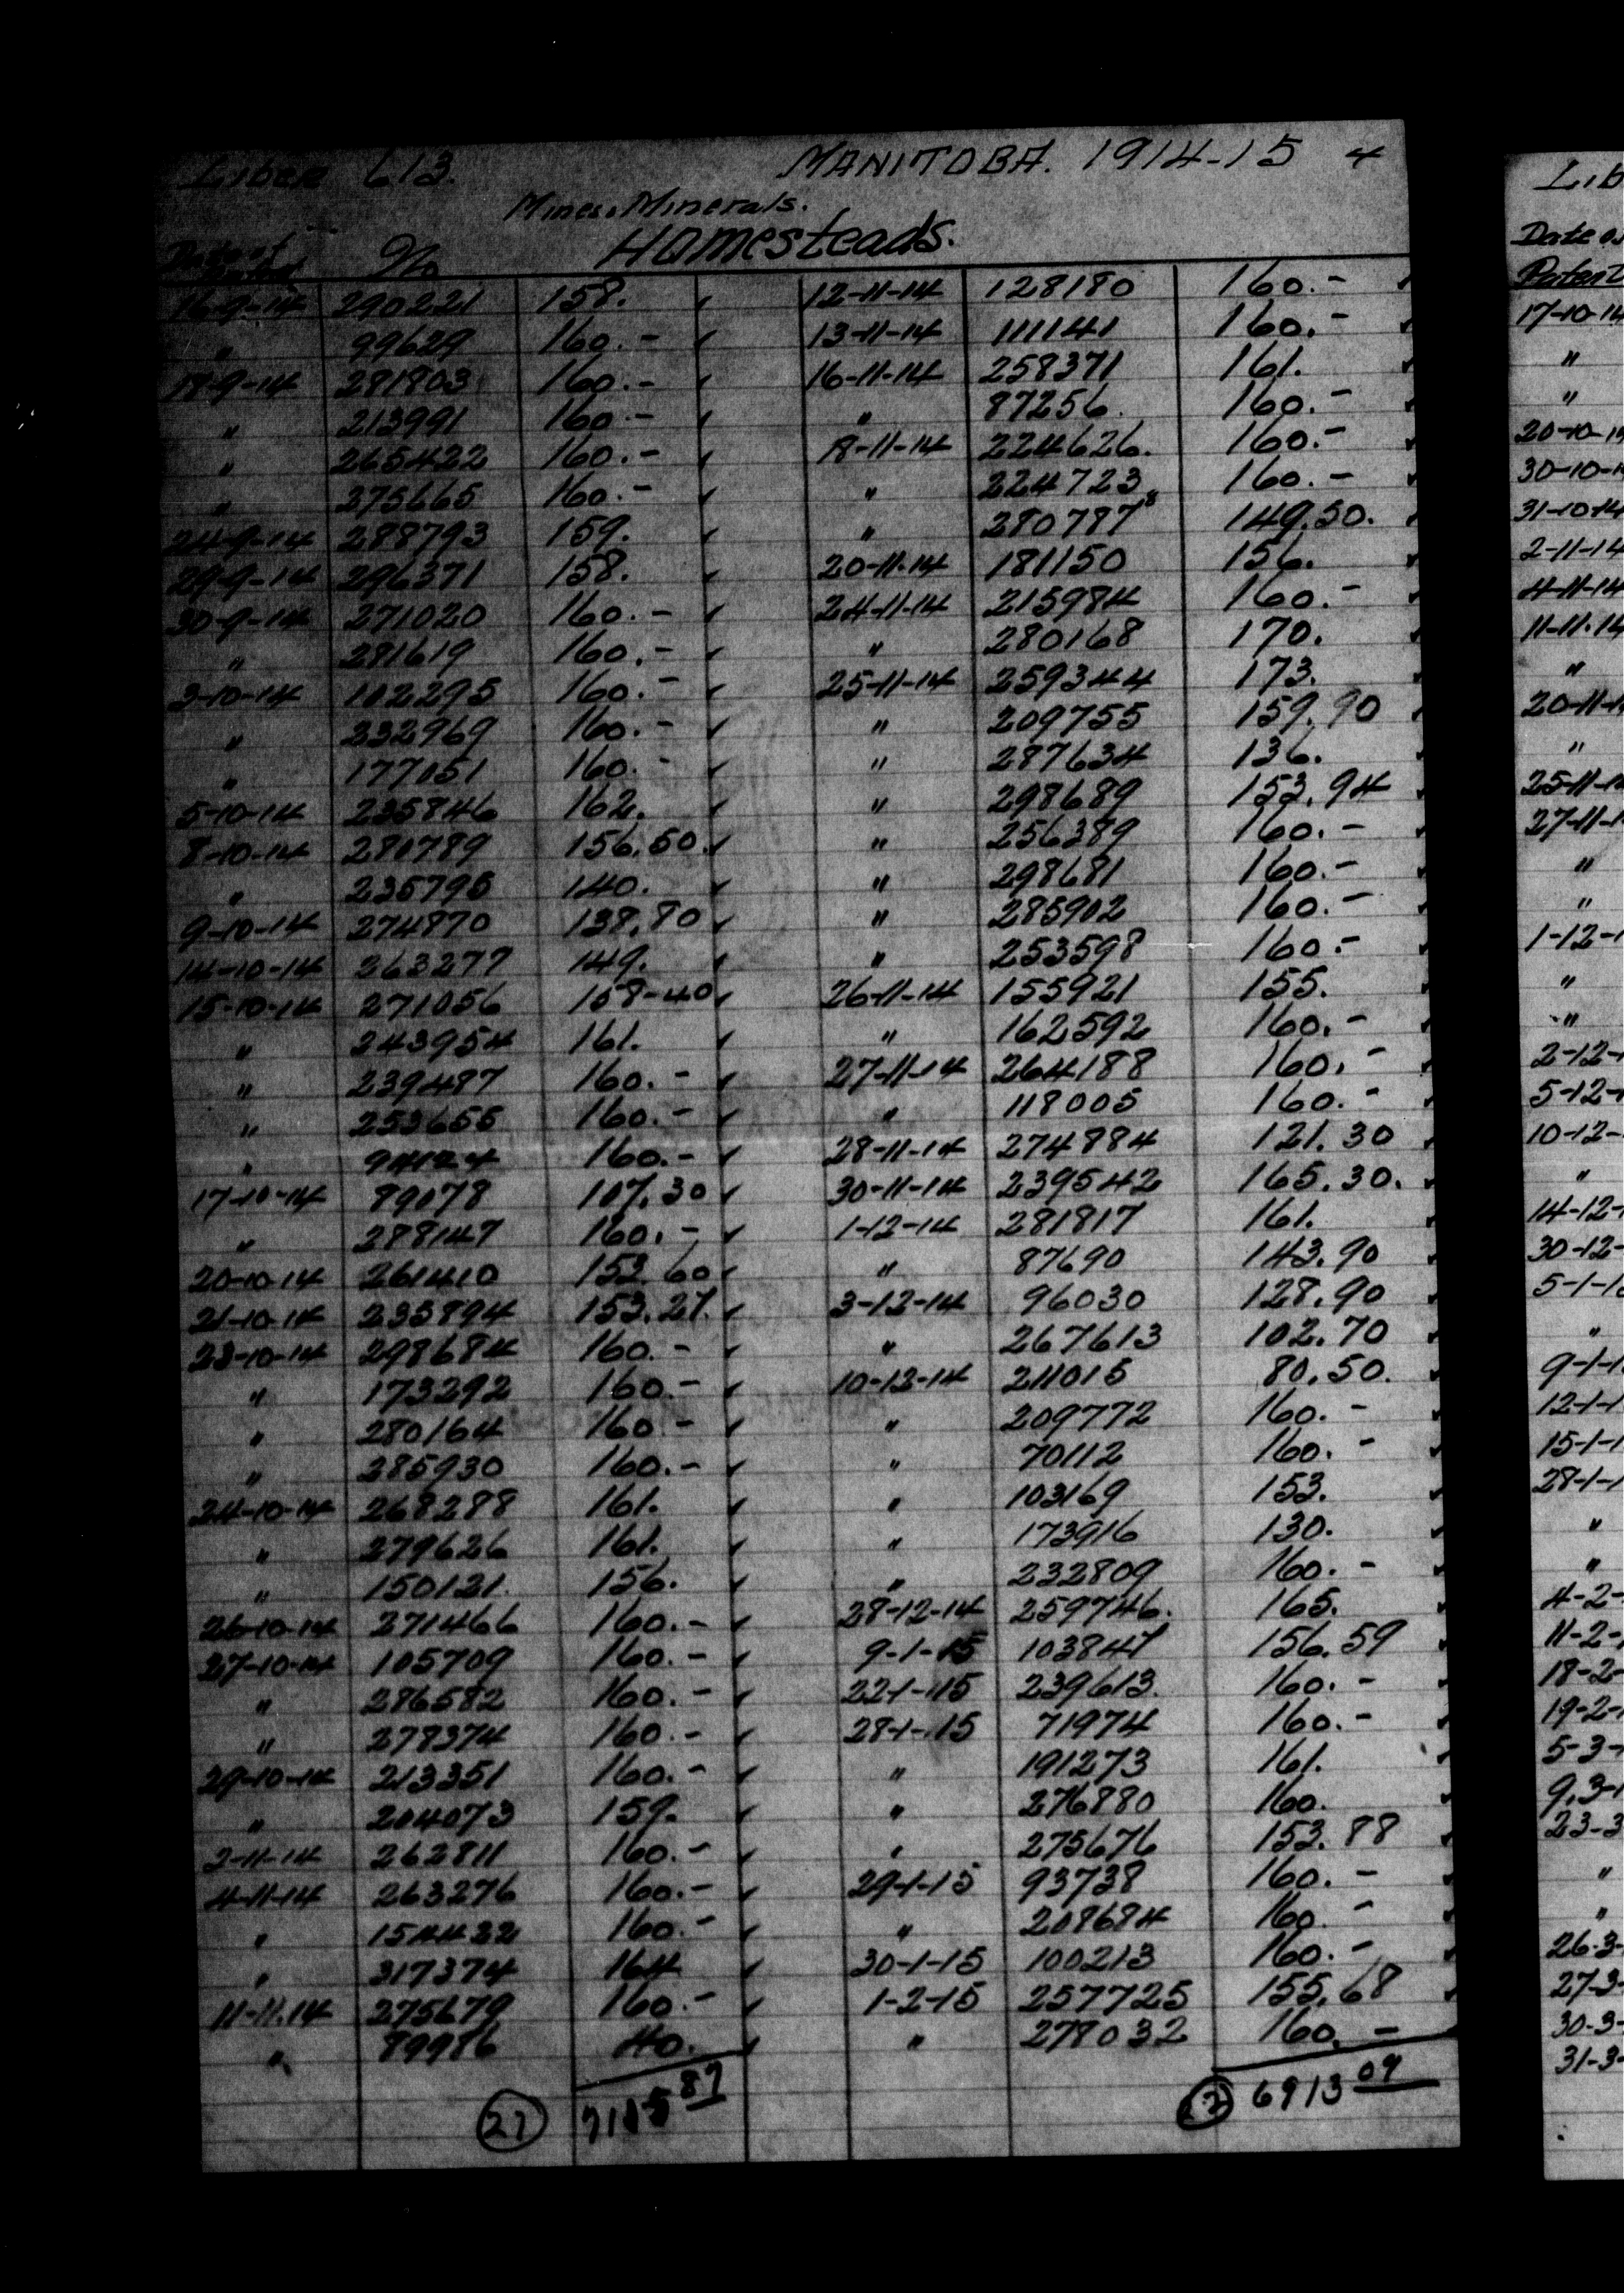 Liber 613. MANITOBA. 1914-15 4
Mines. Minerals.
Homesteads.
Date of Patent No
16-9-14 290221 158. ✓ 12-11-14 128180 160.- ✓
" 99629 160.- ✓ 13-11-14 111141 160.- ✓
18-9-14 281803 160.- ✓ 16-11-14 258371 161. ✓
" 213991 160.- ✓ " 87256 160.- ✓
" 265422 160.- ✓ 18-11-14 224626. 160.- ✓
" 275665 160.- ✓ " 224723 160.- ✓
24-9-14 288793 159. ✓ " 280787 149.50. ✓
29-9-14 296371 158. ✓ 20-11-14 181150 156. ✓
30-9-14 271020 160.- ✓ 24-11-14 215984 160.- ✓
" 281619 160.- ✓ " 280168 170. ✓
3-10-14 102295 160.- ✓ 25-11-14 259344 173. ✓
" 232969 160.- ✓ " 209755 159.90 ✓
" 177051 160.- ✓ " 287634 136. ✓
5-10-14 235846 162. ✓ " 298689 153.94 ✓
8-10-14 280789 156.50. ✓ " 256389 160.- ✓
" 235795 140. ✓ " 298681 160.- ✓
9-10-14 274870 138.80 ✓ " 285902 160.- ✓
14-10-14 263277 149. ✓ " 253598 160.- ✓
15-10-14 271056 158-40 ✓ 26-11-14 155921 155. ✓
" 243954 161. ✓ " 162592 160.- ✓
" 239487 160.- ✓ 27-11-14 264188 160.- ✓
" 253655 160.- ✓ " 118005 160.- ✓
" 94124 160.- ✓ 28-11-14 274884 121.30 ✓
17-10-14 89078 107.30 ✓ 30-11-14 239542 165.30. ✓
" 288147 160.- ✓ 1-12-14 281817 161. ✓
20-10-14 261410 153.60 ✓ " 87690 143.90 ✓
21-10-14 235894 153.27. ✓ 3-12-14 96030 128.90 ✓
23-10-14 298684 160.- ✓ " 267613 102.70 ✓
" 173292 160.- ✓ 10-12-14 211015 80.50. ✓
" 280164 160.- ✓ " 209772 160.- ✓
" 285930 160.- ✓ " 70112 160.- ✓
24-10-14 268288 161. ✓ " 103169 153. ✓
" 279626 161. ✓ " 173916 130. ✓
" 150121. 156. ✓ " 232809 160.- ✓
26-10-14 271466 160.- ✓ 28-12-14 259746. 165. ✓
27-10-14 105709 160.- ✓ 9-1-15 103847 156.59 ✓
" 286582 160.- ✓ 22-1-15 239613. 160.- ✓
" 278374 160.- ✓ 28-1-15 71974 160.- ✓
29-10-14 213351 160.- ✓ " 191273 161. ✓
" 204073 159. ✓ " 276880 160. ✓
2-11-14 262811 160.- ✓ " 275676 153.88 ✓
4-11-14 263276 160.- ✓ 29-1-15 93738 160.- ✓
" 154422 160.- ✓ " 208684 160.- ✓
" 317374 164 ✓ 30-1-15 100213 160.- ✓
11-11.14 275679 160.- ✓ 1-2-15 257725 155.68 ✓
" 89986 40. ✓ " 278032 160.-
27 7115 87 6913 09
Lib
Date o
Patent
17-10-14
"
"
20-10-14
30-10-1
31-10-14
2-11-14
4-11-14
11-11.14
"
20-11-1
"
25-11-1
27-11-1
"
"
1-12-1
"
"
2-12-
5-12-
10-12-
"
14-12-
30-12-
5-1-1
"
9-1-1
12-1-1
15-1-1
28-1-1
"
"
4-2-
11-2-
18-2-
19-2-
5-3-
9.3-
23-3
"
"
26-3-
27-3-
30-3-
31-3-